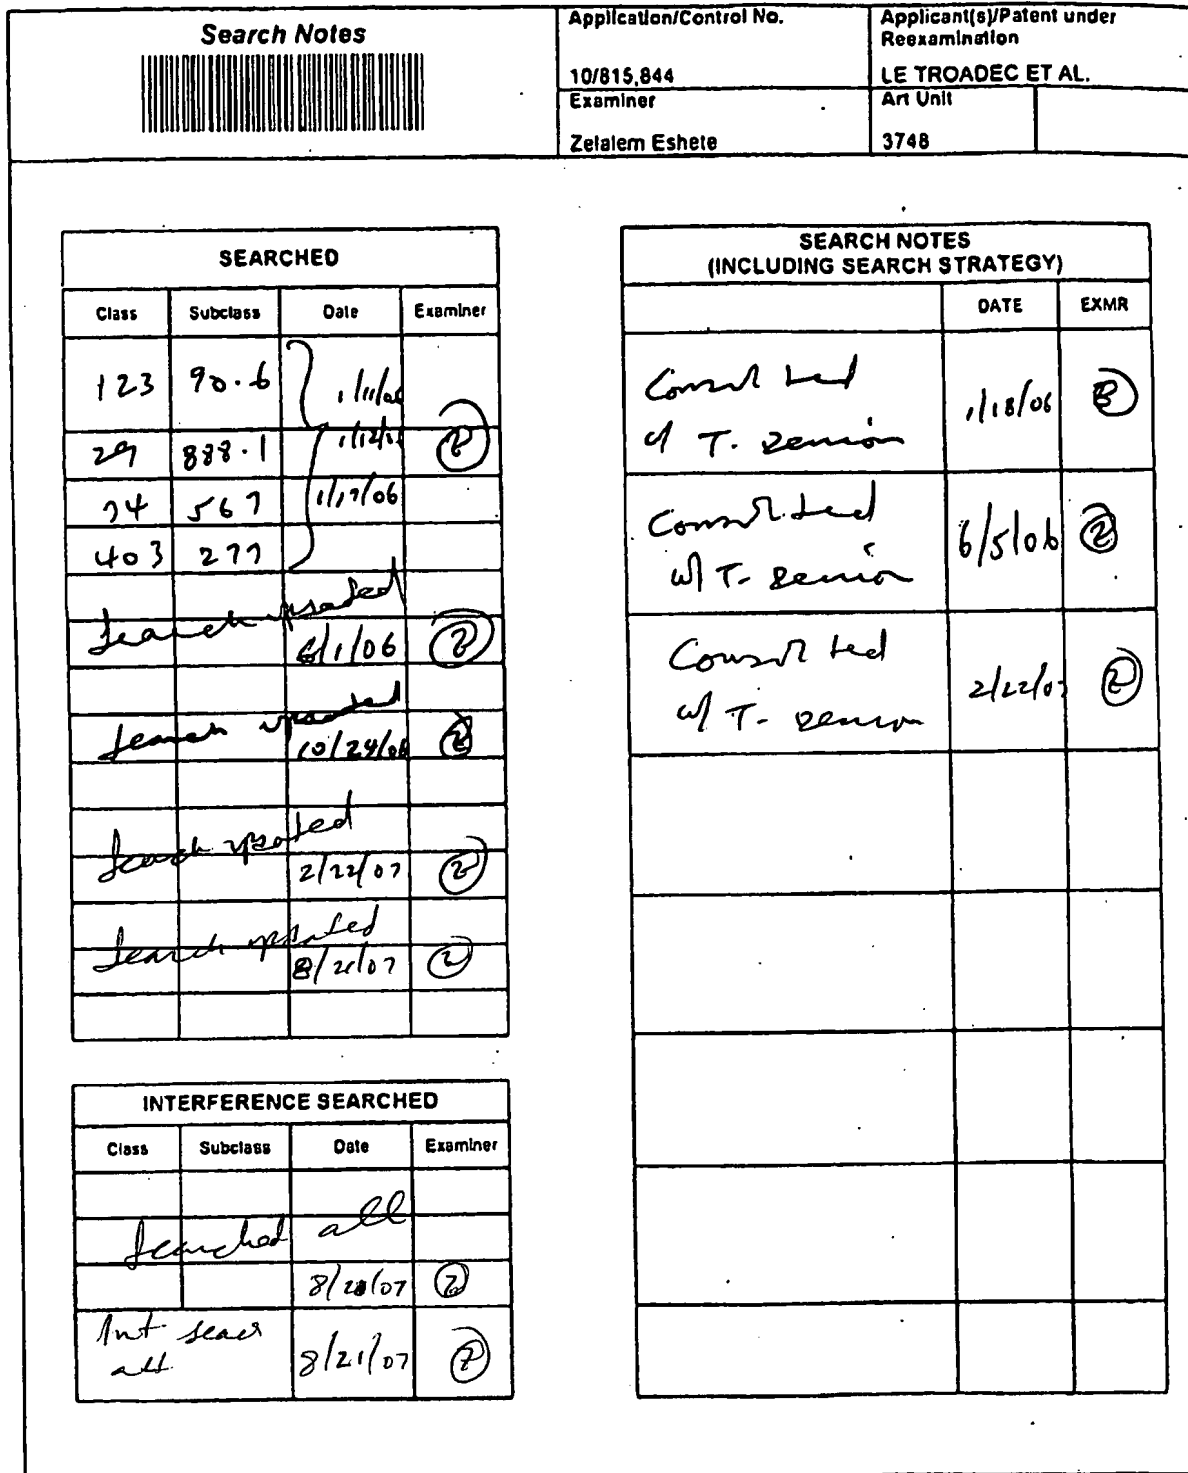 Search Notes
Application/Control No.
10/815,844
Applicant(s)/Patent under
Reexamination
LE TROADEC ET AL.
Examiner
Zelalem Eshete
Art Unit
3748
SEARCHED
Class Subclass Date Examiner
123 90.6 1/11/06
29 888.1 1/12/06 Z
74 567 1/17/06
403 277
Search updated
6/1/06 Z
Search updated
10/24/06 Z
Search updated
2/22/07 Z
Search updated
8/21/07 Z
INTERFERENCE SEARCHED
Class Subclass Date Examiner
Searched all
8/20/07 Z
Int. sear
all 8/21/07 Z
SEARCH NOTES
(INCLUDING SEARCH STRATEGY)
DATE EXMR
Consulted
w/ T. Denion 1/18/06 Z
Consulted
w/ T. Denion 6/5/06 Z
Consulted
w/ T. Denion 2/22/07 Z